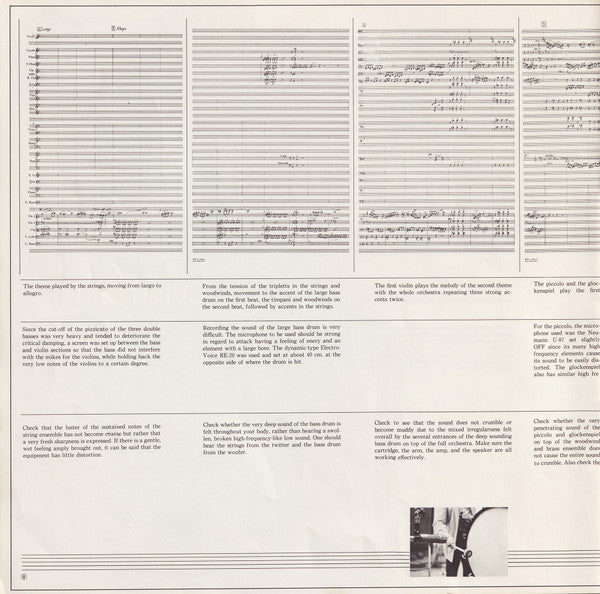 Largo
Allegro
The theme played by the strings, moving from largo to
allegro.
From the tension of the tripletts in the strings and
woodwinds, movement to the accent of the large bass
drum on the first beat, the timpani and woodwinds on
the second beat, followed by accents in the strings.
The first violin plays the melody of the second theme
with the whole orchestra repeating three strong ac-
cents twice.
The piccolo and the gloc-
kenspiel play the first
Since the cut-off of the pizzicato of the three double
basses was very heavy and tended to deteriorate the
critical damping, a screen was set up between the bass
and violin sections so that the bass did not interfere
with the mikes for the violins, while holding back the
very low notes of the violins to a certain degree.
Recording the sound of the large bass drum is very
difficult. The microphone to be used should be strong
in regard to attack having a feeling of enery and an
element with a large bore. The dynamic-type Electro-
Voice RE-20 was used and set at about 40 cm. at the
opposite side of where the drum is hit.
For the piccolo, the micro-
phone used was the Neu-
mann U-87 set slightly
OFF since its many high
frequency elements cause
its sound to be easily dis-
torted. The glockenspiel
also has similar high fre
Check that the luster of the sustained notes of the
string ensemble has not become coarse but rather that
a very fresh sharpness is expressed. If there is a gentle,
wet feeling amply brought out, it can be said that the
equipment has little distortion.
Check whether the very deep sound of the bass drum is
felt throughout your body, rather than hearing a swol-
len, broken high-frequency-like low sound. One should
hear the strings from the twitter and the bass drum
from the woofer.
Check to see that the sound does not crumble or
become muddy due to the mixed irregularness felt
overall by the several entrances of the deep sounding
bass drum on top of the full orchestra. Make sure the
cartridge, the arm, the amp, and the speaker are all
working effectively.
Check whether the very
penetrating sound of the
piccolo and glockenspiel
on top of the woodwind
and brass ensemble does
not cause the entire sound
to crumble. Also check the